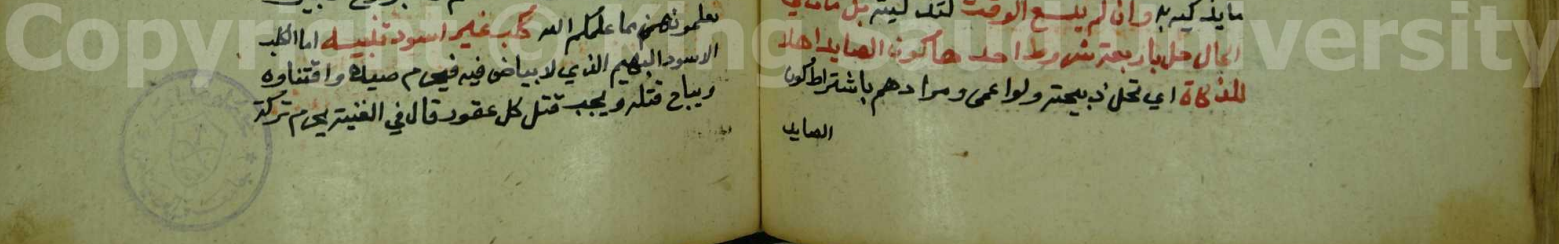 ما يذكيه به وان لم يتسع الوقت لتذكيته بل مات في
الحال حل باربعة شروط احدها كون الصايد اهلا
للذكاة اي تحل ذبيحته ولو اعمى ومرادهم باشتراط كون
الصايد
تعلمونهن مما علمكم الله كلب غير اسود تنبيه اما الكلب
الاسود البهيم الذي لا بياض فيه فيحرم صيده واقتناوه
ويباح قتله ويجب قتل كل عقور قال في الغنية يحرم تركه
Copyright © King Saud University